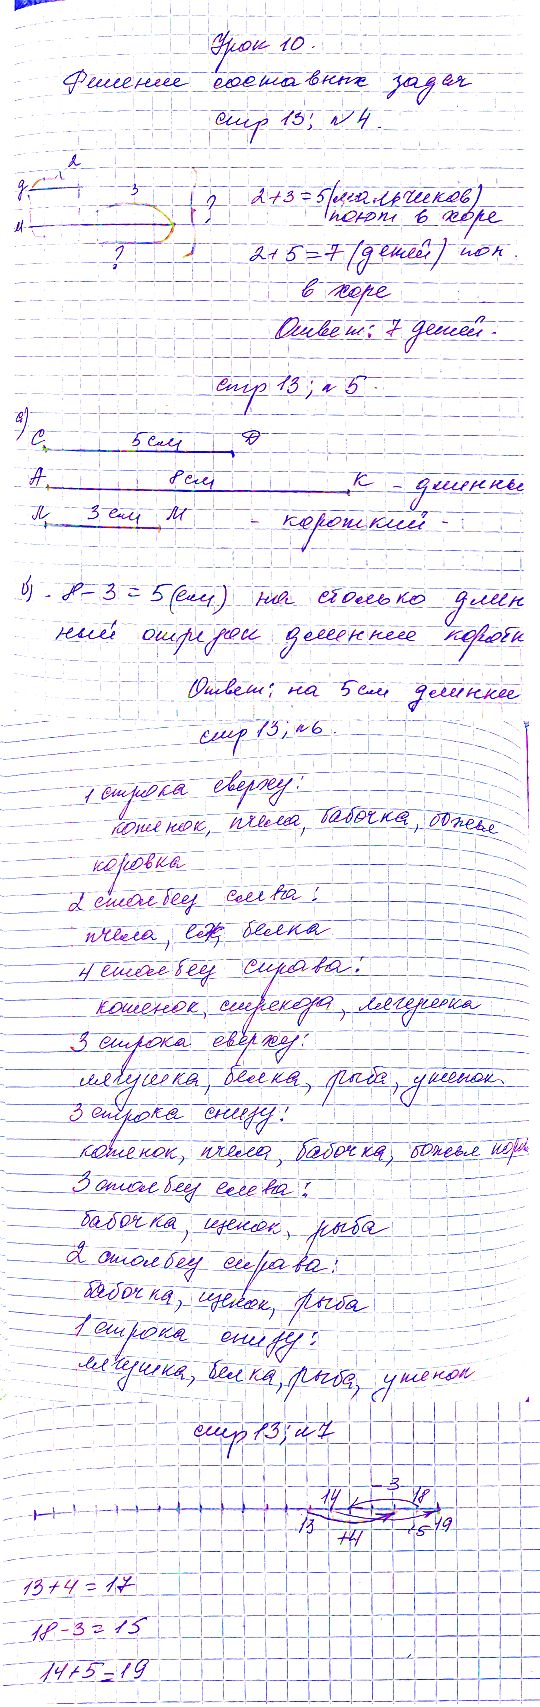 Урок 10.
Решение составных задач
стр 13; № 4.
2
д
3
?
м
?
2+3=5(мальчиков)
поют в хоре
2+5=7(детей) поп.
в хоре
Ответ: 7 детей.
стр 13; № 5.
а)
С 5см Д
А 8см К - длинны
Л 3см М - короткий -
б). 8-3=5(см) на столько длин
ный отрезок длиннее коротк
Ответ: на 5см длиннее
стр 13; №6.
1 строка сверху:
котенок, пчела, бабочка, божья
коровка
2 столбец слева:
пчела, еж, белка
4 столбец справа:
котенок, стрекоза, лягушка
3 строка сверху:
лягушка, белка, рыба, утенок.
3 строка снизу:
котенок, пчела, бабочка, божья коро
3 столбец слева:
бабочка, щенок, рыба
2 столбец справа:
бабочка, щенок, рыба
1 строка снизу:
лягушка, белка, рыба, утенок
стр 13; №7
-3
14 18
13 +4 +5 19
13+4=17
18-3=15
14+5=19